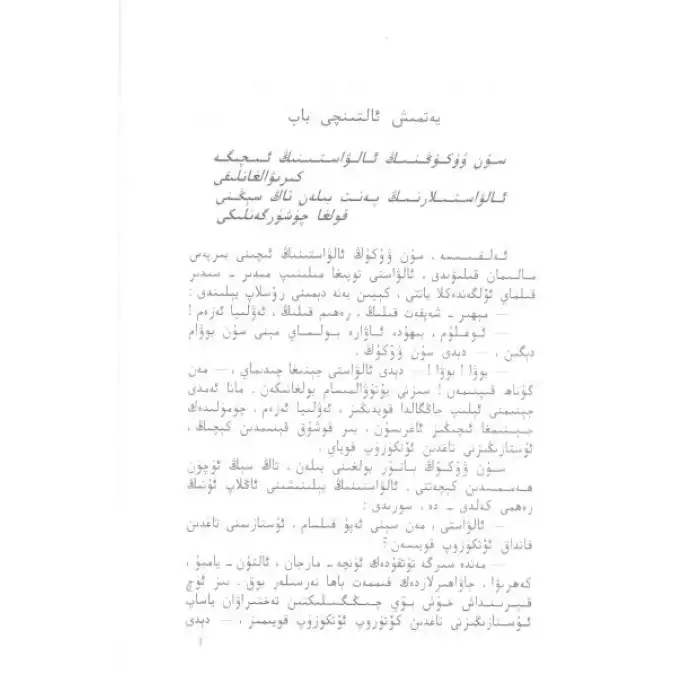 يەتمىش ئالتىنچى باب
سۇن ۋۇكۇڭنىڭ ئالۋاستىنىڭ ئىچىگە
كىرىۋالغانلىقى
ئالۋاستىلارنىڭ پەنت بىلەن تاڭ سېڭنى
قولغا چۈشۈرگەنلىكى
ئەلقىسسە، سۇن ۋۇكۇڭ ئالۋاستىنىڭ ئىچىنى بىرپەس
مالىمان قىلىۋىدى، ئالۋاستى توپىغا مىلىنىپ مىدىر ـ سىدىر
قىلماي ئۆلگەندەكلا ياتتى، كېيىن يەنە دېمىنى رۇسلاپ يېلىندى:
— مېھىر ـ شەپقەت قىلىڭ، رەھىم قىلىڭ، ئەۋلىيا ئەزەم!
— ئوغلۇم، بىھۇدە ئاۋارە بولماي مېنى سۇن بوۋام
دېگىن، — دېدى سۇن ۋۇكۇڭ.
— بوۋا! بوۋا! — دېدى ئالۋاستى جېنىغا چىدىماي، — مەن
گۇناھ قىپتىمەن! سىزنى يۇتۇۋالمىسام بولغانىكەن. مانا ئەمدى
جېنىمنى ئېلىپ جاڭگالدا قويدىڭىز، ئەۋلىيا ئەزەم، چۈمۈلىدەك
جېنىمغا ئىچىڭىز ئاغرىسۇن، بىر قوشۇق قېنىمدىن كېچىڭ،
ئۇستازىڭىزنى تاغدىن ئۆتكۈزۈپ قوياي.
سۇن ۋۇكۇڭ باتۇر بولغىنى بىلەن، تاڭ سېڭ ئۈچۈن
ھەممىدىن كېچەتتى، ئالۋاستىنىڭ يېلىنىشىنى ئاڭلاپ ئۇنىڭ
رەھمى كەلدى ـ دە، سورىدى:
— ئالۋاستى، مەن سېنى ئەپۇ قىلسام، ئۇستازىمنى تاغدىن
قانداق ئۆتكۈزۈپ قويىسەن؟
— مەندە سىزگە تۇتقۇدەك ئۈنچە ـ مارجان، ئالتۇن ـ يامبۇ،
كەھرىۋا، جاۋاھىرلاردەك قىممەت باھا نەرسىلەر يوق. بىز ئۈچ
قېرىنداش خۇش بۇي چىڭگىلىكتىن تەختىراۋان ياساپ
ئۇستازىڭىزنى تاغدىن كۆتۈرۈپ ئۆتكۈزۈپ قويىمىز، — دېدى